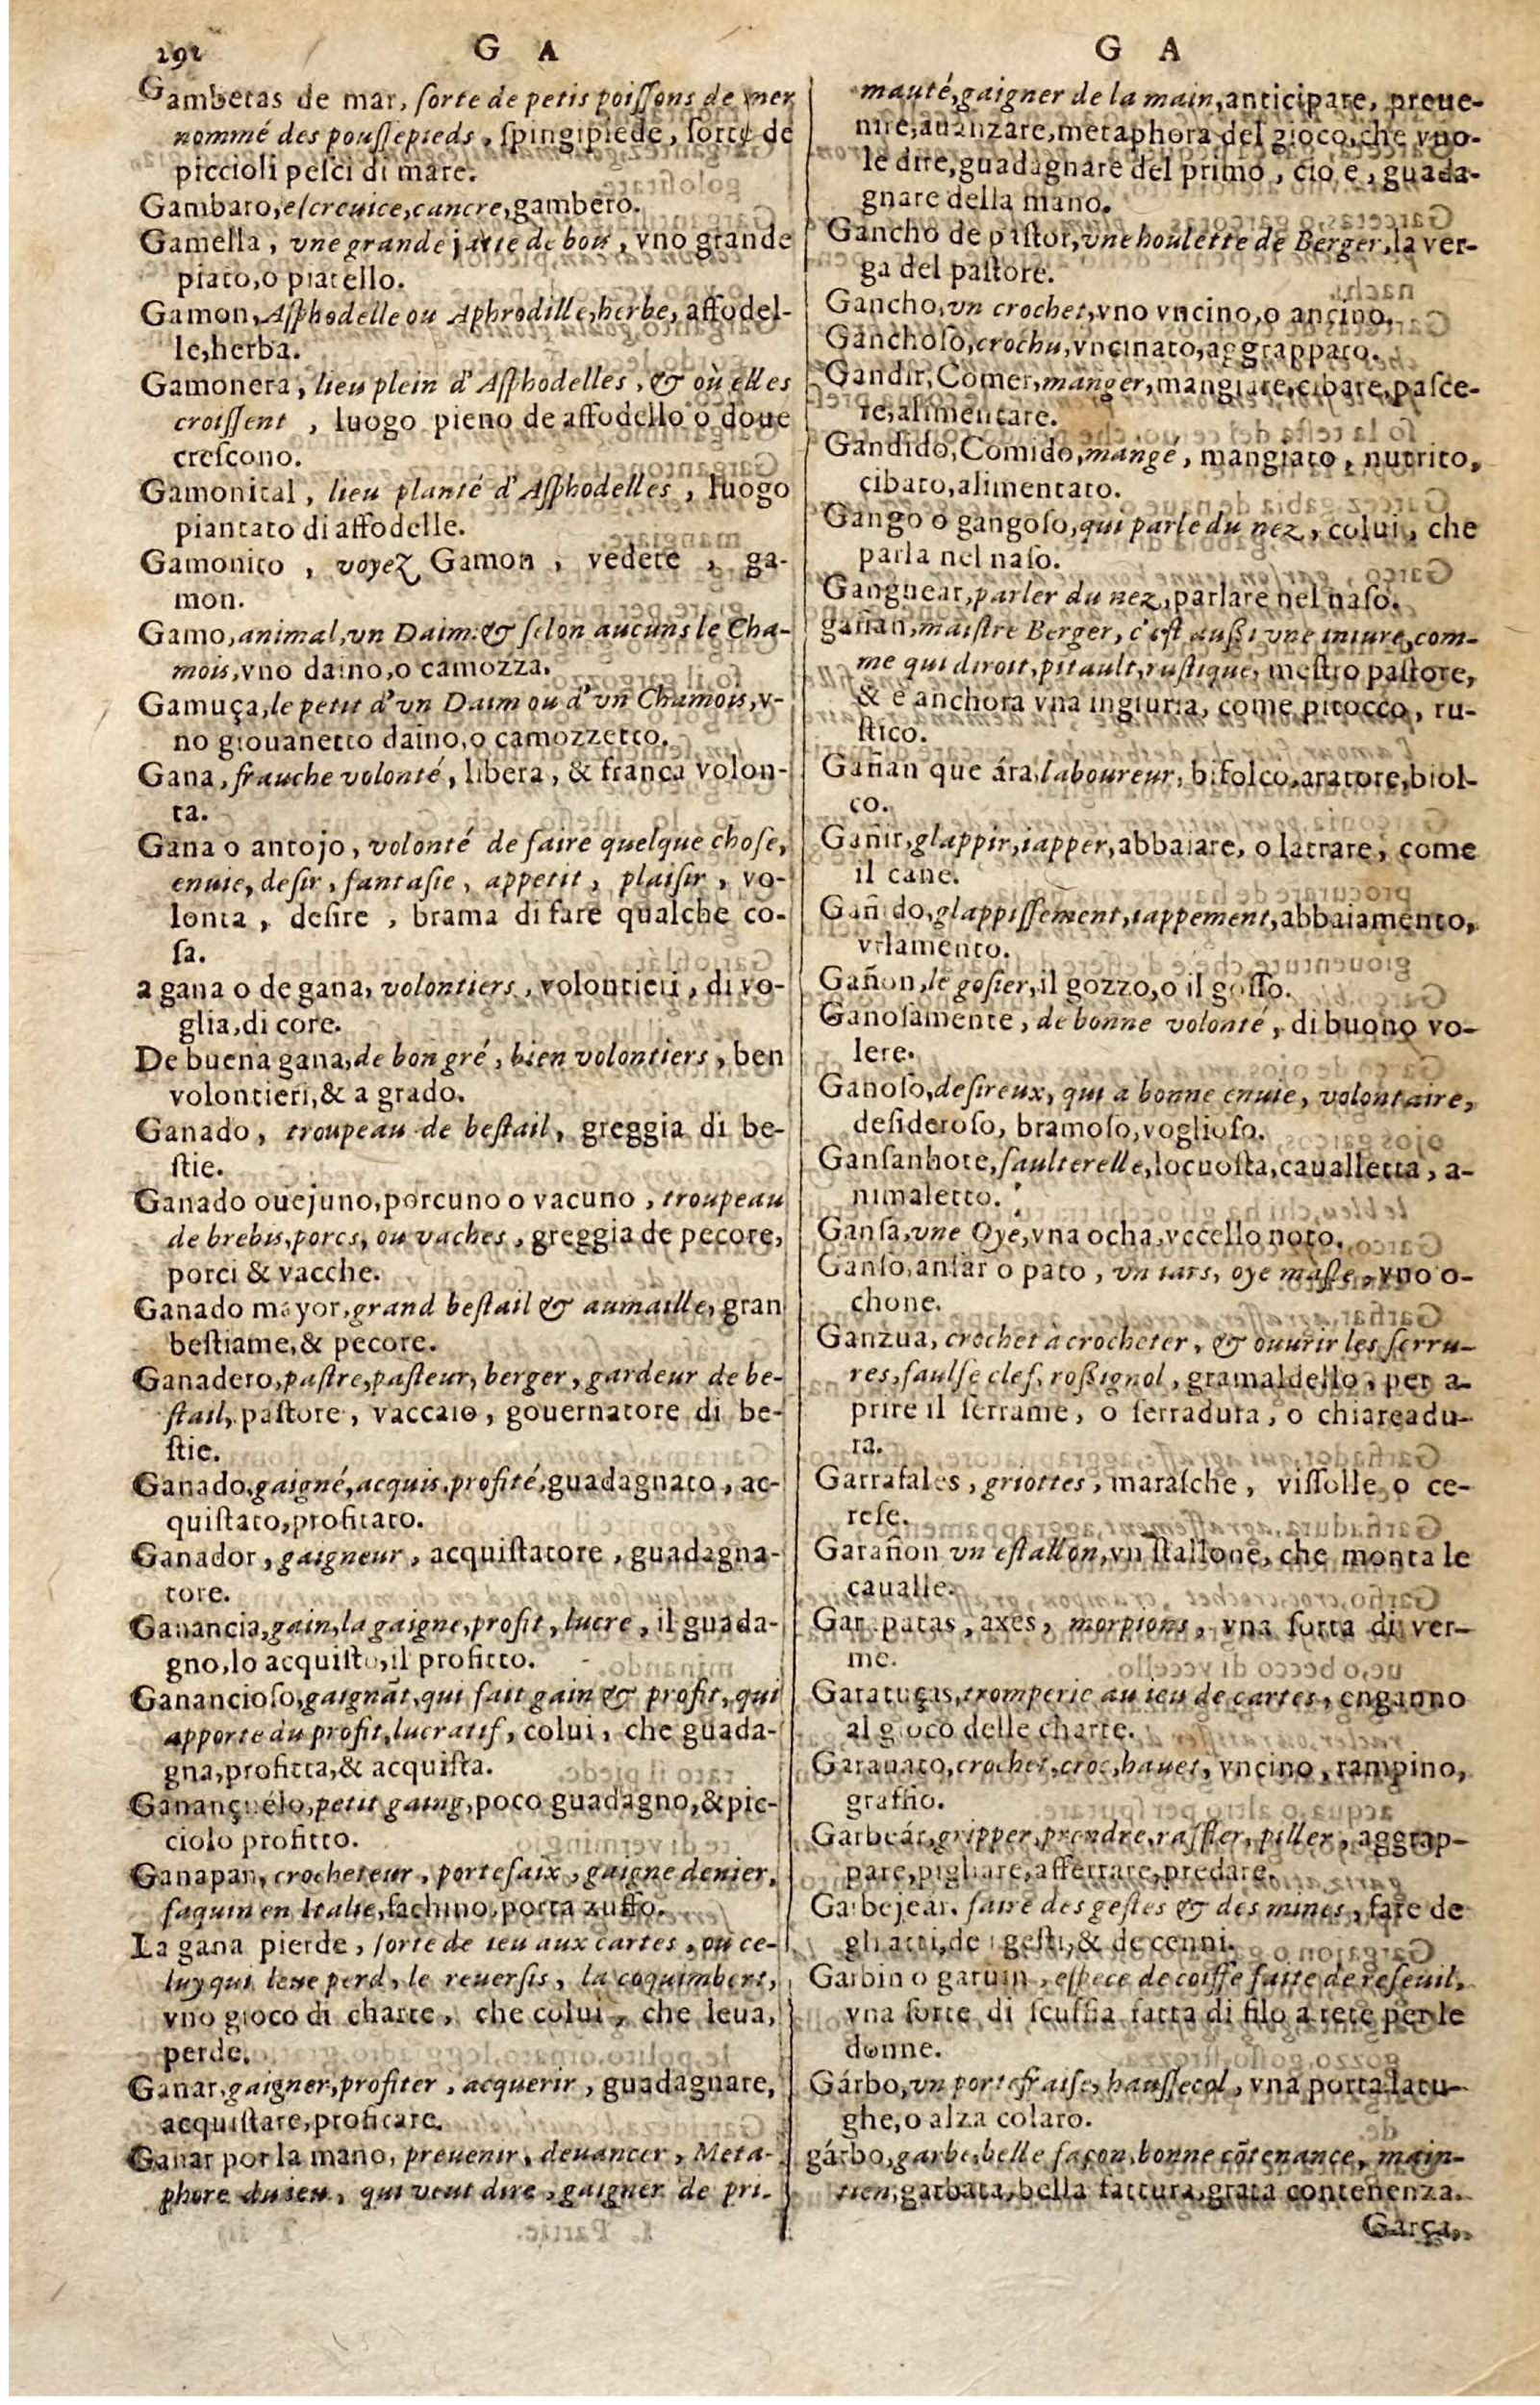 292 G A
Gambetas de mar, ſorte de petis poiſſons de mer
nommé des pouſſepieds, ſpingipiede, ſorte de
piccioli peſci di mare.
Gambaro, eſcreuice, cancre, gambero.
Gamella, vne grande jatte de bois, vno grande
piato, o piatello.
Gamon, Aſphodelle ou Aphrodille, herbe, affodel-
le, herba.
Gamonera, lieu plein d'Aſphodelles, & où elles
croiſſent, luogo pieno de affodello o doue
creſcono.
Gamonital, lieu planté d'Aſphodelles, luogo
piantato di affodelle.
Gamonito, voyez Gamon, vedete, ga-
mon.
Gamo, animal, vn Daim: & ſelon aucuns le Cha-
mois, vno daino, o camozza.
Gamuça, le petit d'vn Daim ou d'vn Chamois, v-
no giouanetto daino, o camozzetto.
Gana, frauche volonté, libera, & franca volon-
ta.
Gana o antojo, volonté de faire quelque choſe,
enuie, deſir, fantaſie, appetit, plaiſir, vo-
lonta, deſire, brama di fare qualche co-
ſa.
a gana o de gana, volontiers, volontieri, di vo-
glia, di core.
De buena gana, de bon gré, bien volontiers, ben
volontieri, & a grado.
Ganado, troupeau de beſtail, greggia di be-
ſtie.
Ganado ouejuno, porcuno o vacuno, troupeau
de brebis, porcs, ou vaches, greggia de pecore,
porci & vacche.
Ganado mayor, grand beſtail & aumaille, gran
beſtiame, & pecore.
Ganadero, paſtre, paſteur, berger, gardeur de be-
ſtail, paſtore, vaccaio, gouernatore di be-
ſtie.
Ganado, gaigné, acquis, profité, guadagnato, ac-
quiſtato, profitato.
Ganador, gaigneur, acquiſtatore, guadagna-
tore.
Ganancia, gain, la gaigne, profit, lucre, il guada-
gno, lo acquiſto, il profitto.
Ganancioſo, gaignãt, qui fait gain & profit, qui
apporte du profit, lucratif, colui, che guada-
gna, profitta, & acquiſta.
Ganançuélo, petit gaing, poco guadagno, & pic-
ciolo profitto.
Ganapan, crocheteur, portefaix, gaigne denier,
faquin en Italie, fachino, porta zuffo.
La gana pierde, ſorte de ieu aux cartes, ou ce-
luy qui leue perd, le reuerſis, la coquimbert,
vno gioco di charte, che colui, che leua,
perde.
Ganar, gaigner, profiter, acquerir, guadagnare,
acquiſtare, profitare.
Ganar por la mano, preuenir, deuancer, Meta-
phore du ieu, qui veut dire, gaigner de pri-
G A
mauté, gaigner de la main, anticipare, preue-
nire, auanzare, metaphora del gioco, che vno-
le dire, guadagnare del primo, cio e, guada-
gnare della mano.
Gancho de paſtor, vne houlette de Berger, la ver-
ga del paſtore.
Gancho, vn crochet, vno vncino, o ancino.
Ganchoſo, crochu, vncinato, aggrappato.
Gandir, Comer, manger, mangiare, cibare, paſce-
re, alimentare.
Gandido, Comido, mangé, mangiato, nutrito,
cibato, alimentato.
Gango o gangoſo, qui parle du nez, colui, che
parla nel naſo.
Ganguear, parler du nez, parlare nel naſo.
gañan, maiſtre Berger, c'eſt auſſi vne iniure, com-
me qui diroit, pitault, ruſtique, meſtro paſtore,
& e anchora vna ingiuria, come pitocco, ru-
ſtico.
Gañan que ára, laboureur, bifolco, aratore, biol-
co.
Gañir, glappir, iapper, abbaiare, o latrare, come
il cane.
Gañido, glappiſſement, iappement, abbaiamento,
vrlamento.
Gañon, le goſier, il gozzo, o il goſſo.
Ganoſamente, de bonne volonté, di buono vo-
lere.
Ganoſo, deſireux, qui a bonne enuie, volontaire,
deſideroſo, bramoſo, voglioſo.
Ganſanhote, ſaulterelle, locuoſta, caualletta, a-
nimaletto.
Ganſa, vne Oye, vna ocha, vccello noto.
Ganſo, anſar o pato, vn iars, oye maſle, vno o-
chone.
Ganzua, crochet à crocheter, & ouurir les ſerru-
res, faulſe clef, roſſignol, gramaldello, per a-
prire il ſerrame, o ſerradura, o chiareadu-
ra.
Garrafales, griottes, maraſche, viſſolle o ce-
reſe.
Garañon vn eſtallon, vn ſtallone, che monta le
caualle.
Garrapatas, axes, morpions, vna ſorta di ver-
me.
Garatuças, tromperie au ieu de cartes, enganno
al gioco delle charte.
Garauato, crochet, croc, hauet, vncino, rampino,
graffio.
Garbeár, gripper, prendre, raffler, piller, aggrap-
pare, pigliare, afferrare, predare.
Garbejear, faire des geſtes & des mines, fare de
gli atti, de i geſti, & de cenni.
Garbin o garuin, eſpece de coiffe faite de reſeuil,
vna ſorte di ſcuffia fatta di filo a rete per le
donne.
Gárbo, vn portefraiſe, hauſſecol, vna porta latu-
ghe, o alza colaro.
gárbo, garbe, belle façon, bonne cõtenance, main-
tien, garbata, bella fattura, grata contenenza.
Garça,